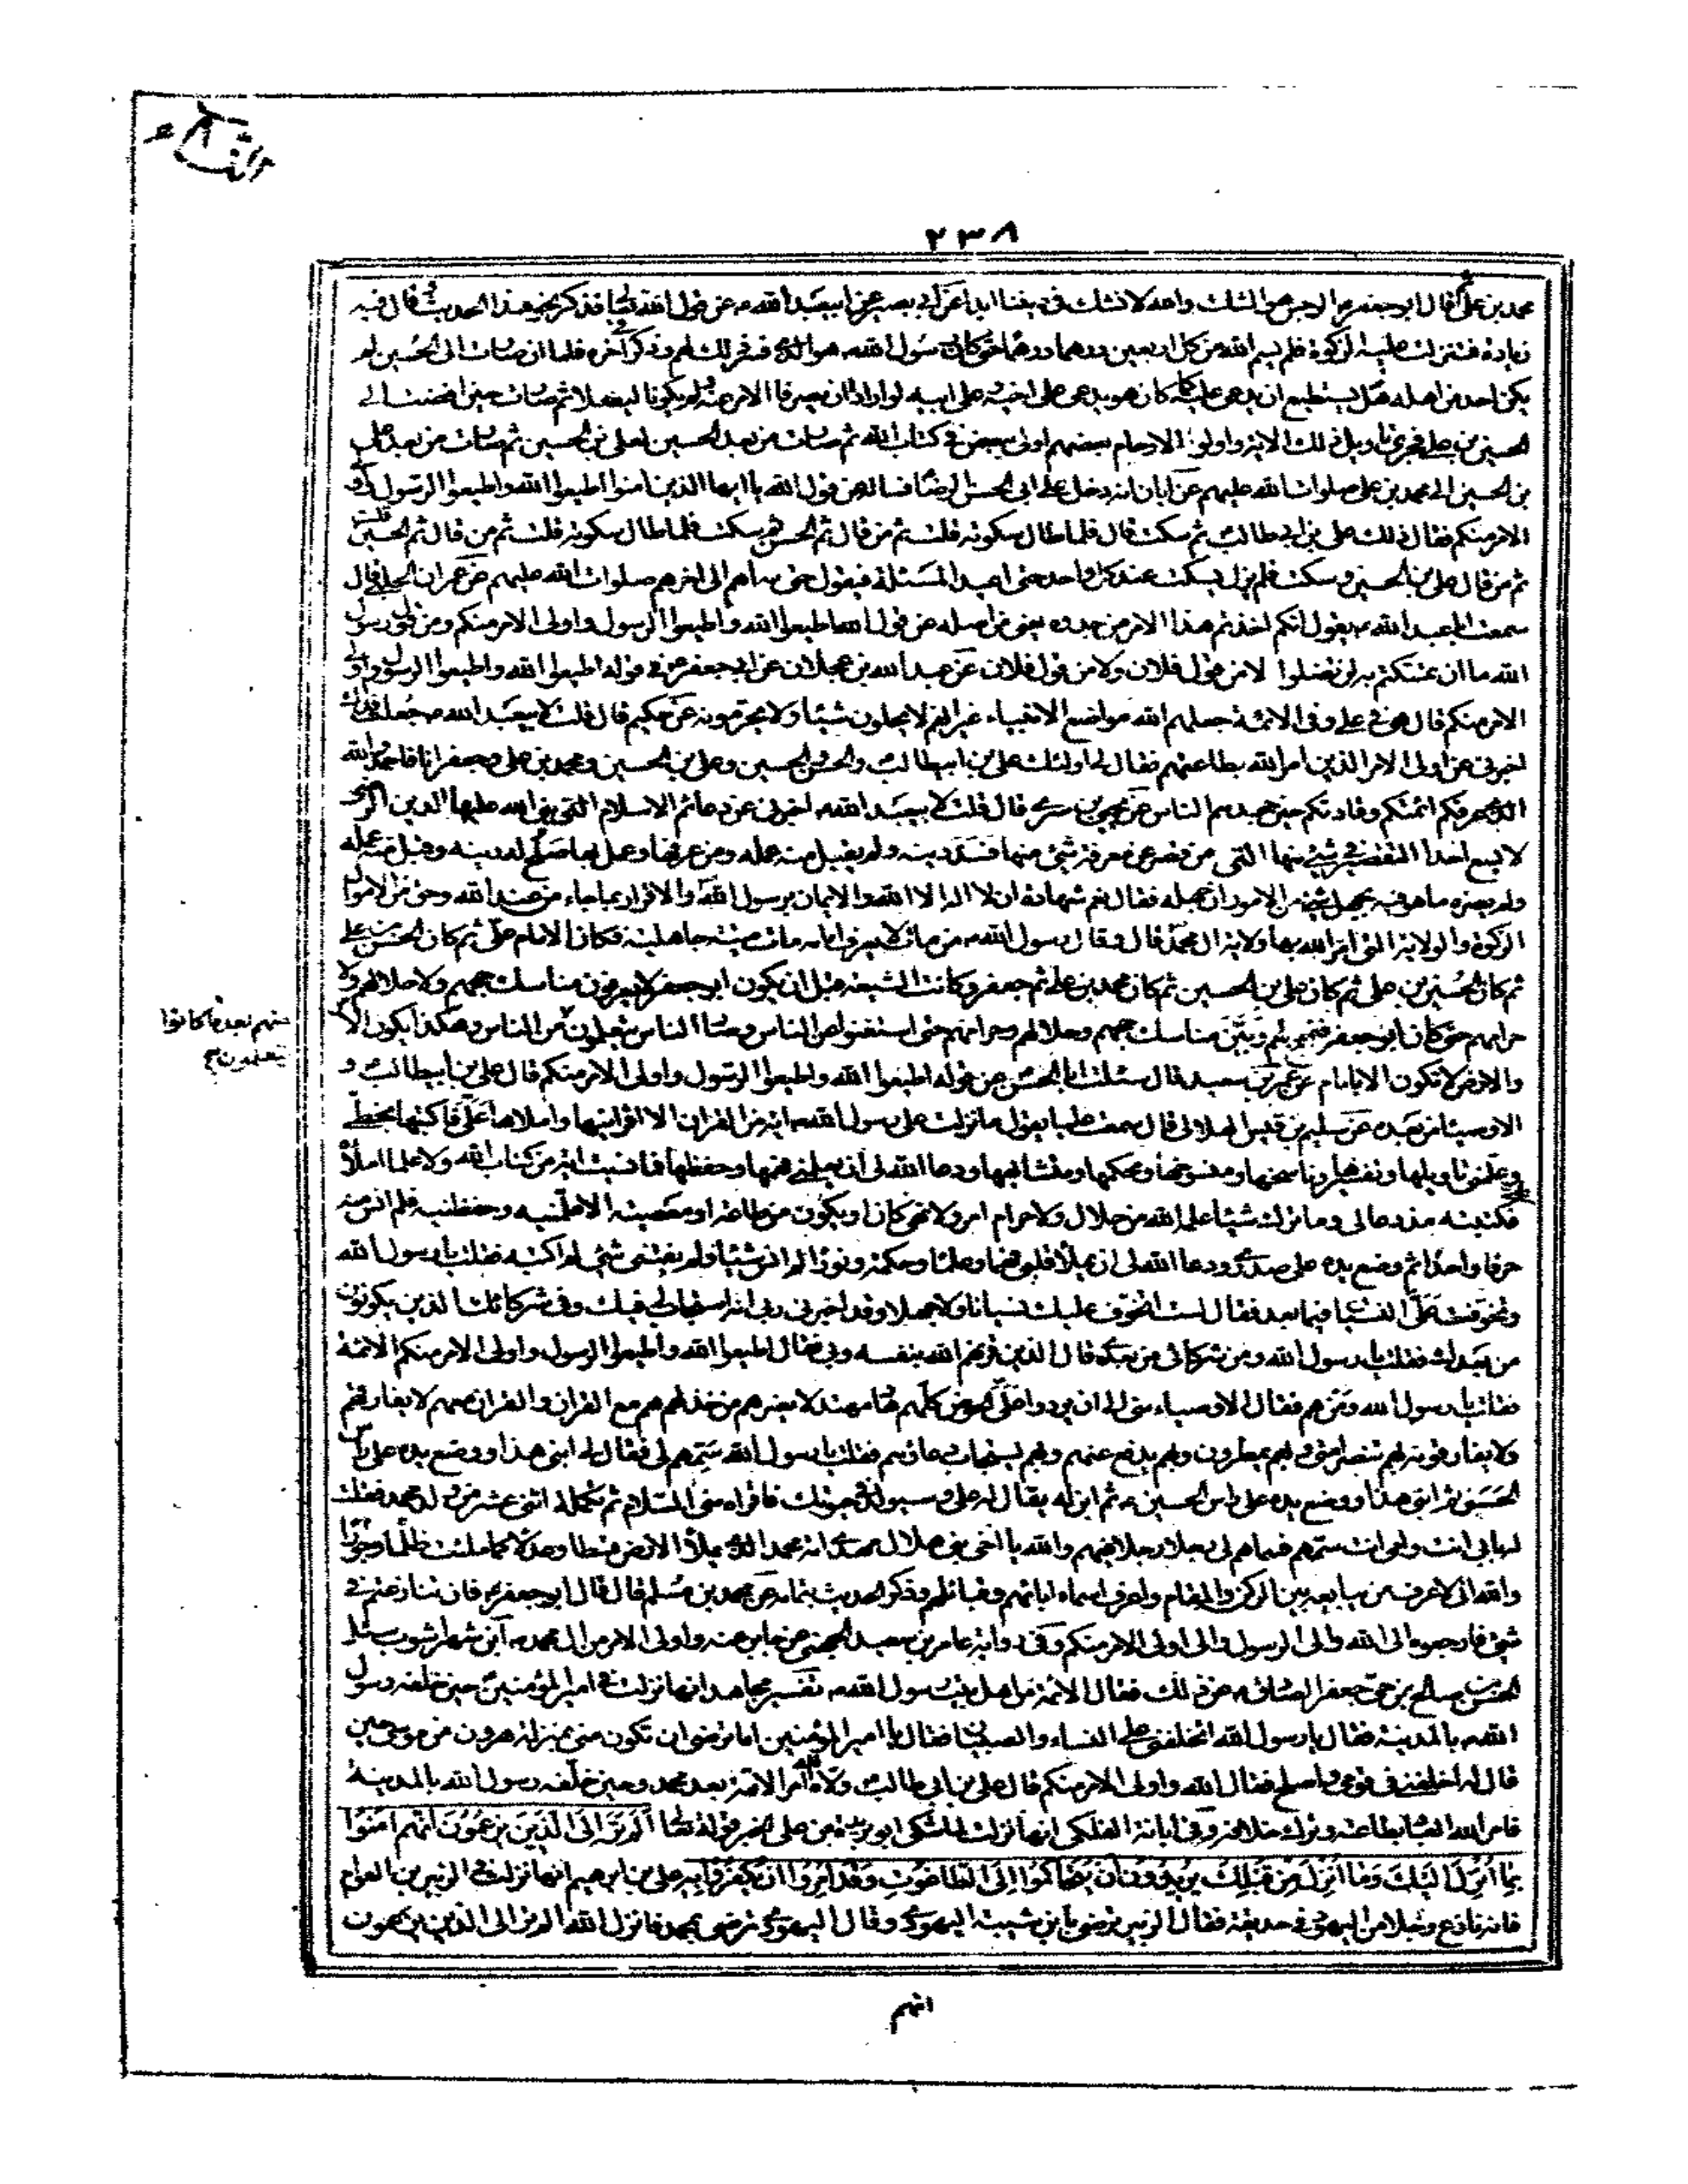 ٢٣٨
محمد بن على قال ابو جعفر ع الرجس هو الشك والله لا نشك فى ديننا ابدا عن ابى بصير عن ابيعبد الله ع عن قول الله تعالى فذكر نحو هذا الحديث وقال فيه
زيادة فنزلت عليه الزكوة فلم يسم الله من كل اربعين درهما درهما حتى كان رسول الله ص هو الذى فسر ذلك لهم وذكر فى آخره فلما ان صارت الى الحسين لم
يكن احد من اهله يستطيع ان يدعى عليه كما كان هو يدعى على اخيه وعلى ابيه لو ارادا ان يصرفا الامر عنه ولم يكونا ليفعلا ثم صارت حين افضت الى
الحسين بن على فجرى تاويل ذلك الاية واولوا الارحام بعضهم اولى ببعض فى كتاب الله ثم صارت من بعد الحسين لعلى بن الحسين ثم صارت من بعد على
بن الحسين الى محمد بن على صلوات الله عليهم عن ابان انه دخل على ابى الحسن الرضا فساله عن قول الله يا ايها الذين امنوا اطيعوا الله واطيعوا الرسول واولى
الامر منكم فقال ذلك على بن ابى طالب ثم سكت قال فلما طال سكوته قلت ثم من قال ثم الحسن ثم سكت فلما طال سكوته قلت ثم من قال ثم الحسين قلت
ثم من قال على بن الحسين وسكت فلم يزل يسكت عند كل واحد حتى اعيد المسئلة فيقول حتى سماهم الى اخرهم صلوات الله عليهم عن عمران الحلبى قال
سمعت ابا عبد الله ع يقول انكم اخذتم هذا الامر من جذوه يعنى من اصله عن قول الله اطيعوا الله واطيعوا الرسول واولى الامر منكم ومن قول رسول
الله ما ان تمسكتم به لن تضلوا لا من قول فلان ولا من قول فلان عن عبد الله بن عجلان عن ابى جعفر ع فى قوله اطيعوا الله واطيعوا الرسول واولى
الامر منكم قال هى فى على وفى الائمة جعلهم الله مواضع الانبياء غير انهم لا يحلون شيئا ولا يحرمونه عن حكيم قال قلت لابيعبد الله ع جعلت فداك
اخبرنى عن اولى الامر الذين امر الله بطاعتهم فقال لى اولئك على بن ابيطالب والحسن والحسين وعلى بن الحسين ومحمد بن على وجعفر انا فاحمدوا الله
الذى عرفكم ائمتكم وقادتكم حين جحدهم الناس عن يحيى بن سرى قال قلت لابيعبد الله ع اخبرنى عن دعائم الاسلام التى بنى الله عليها الدين
لا يسع احدا التقصير فى شئ منها التى من قصر عن معرفة شئ منها فسد دينه ولم يقبل منه عمله ومن عرفها وعمل بها صلح له دينه وقبل منه عمله
ولم يضره ما هو فيه بجهل شئ من الامور ان جهله فقال نعم شهادة ان لا اله الا الله والايمان برسول الله والاقرار بما جاء من عند الله وحق من الاموال
الزكوة والولاية التى امر الله بها ولاية ال محمد قال وقال رسول الله ص من مات لا يعرف امامه مات ميتة جاهلية فكان الامام على ثم كان الحسن بن على
ثم كان الحسين بن على ثم كان على بن الحسين ثم كان محمد بن على ثم جعفر وكانت الشيعة قبل ان يكون ابو جعفر لا يعرفون مناسك حجهم ولا حلالهم ولا
حرامهم حتى كان ابو جعفر فنهج لهم وبين مناسك حجهم وحلالهم وحرامهم حتى استغنوا عن الناس وصار الناس يتعلمون من الناس وهكذا يكون الامر
منهم بعد ما كانوا
يتعلمون
والارض لا تكون الا بامام عن عمرو بن سعيد قال سئلت ابا الحسن عن قوله اطيعوا الله واطيعوا الرسول واولى الامر منكم قال على بن ابيطالب و
الاوصياء من بعده عن سليم بن قيس الهلالى قال سمعت عليا يقول ما نزلت على رسول الله ص اية من القران الا اقرانيها واملاها على فاكتبها بخطى
وعلمنى تاويلها وتفسيرها وناسخها ومنسوخها ومحكمها ومتشابهها ودعا الله لى ان يعلمنى فهمها وحفظها فما نسيت اية من كتاب الله ولا علما املاه
فكتبته منذ دعا لى وما ترك شيئا علمه الله من حلال ولا حرام امر ولا نهى كان او يكون من طاعة او معصية الا علمنيه وحفظنيه فلم انس منه
حرفا واحدا ثم وضع يده على صدرى ودعا الله لى ان يملا قلبى فهما وعلما وحكمة ونورا لم انس شيئا ولم يفتنى شئ لم اكتبه فقلت يا رسول الله
وتخوفت على النسيان فيما بعد فقال لست اتخوف عليك نسيانا ولا جهلا وقد اخبرنى ربى انه استجاب لى فيك وفى شركائك الذين يكونون
من بعدك فقلت يا رسول الله ومن شركائى من بعدى قال الذين قرنهم الله بنفسه وبى فقال اطيعوا الله واطيعوا الرسول واولى الامر منكم الائمة
فقلت يا رسول الله ومن هم فقال الاوصياء منى الى ان يردوا على الحوض كلهم هاد مهتد لا يضرهم من خذلهم هم مع القران والقران معهم لا يفارقهم
ولا يفارقونه بهم تنصر امتى وبهم يمطرون وبهم يدفع عنهم وبهم يستجاب دعاؤهم فقلت يا رسول الله سمهم لى فقال لى ابنى هذا ووضع يده على راس
الحسن ثم ابنى هذا ووضع يده على راس الحسين ع ثم ابن له يقال له على وسيولد فى حيوتك فاقراه منى السلام ثم تكملة اثنى عشر من ولد محمد فقلت
له بابى انت وامى انت سمهم فسماهم لى رجلا رجلا فيهم والله يا اخى بنى هلال مهدى امة محمد الذى يملا الارض قسطا وعدلا كما ملئت ظلما وجورا
والله انى لاعرف من يبايعه بين الركن والمقام واعرف اسماء ابائهم وقبائلهم وذكر الحديث بتمامه عن محمد بن مسلم قال قال ابو جعفر ع فان تنازعتم فى
شئ فارجعوه الى الله والى الرسول والى اولى الامر منكم وفى رواية عامر بن سعيد الجهنى عن جابر عنه واولى الامر من ال محمد ص ابن شهراشوب سئل
الحسن بن صالح بن حى جعفر الصادق ع عن ذلك فقال الائمة من اهل بيت رسول الله ص تفسير مجاهد انها نزلت فى امير المؤمنين حين خلفه رسول
الله ص بالمدينة فقال يا رسول الله اتخلفنى على النساء والصبيان فقال يا امير المؤمنين اما ترضى ان تكون منى بمنزلة هرون من موسى حين
قال له اخلفنى فى قومى واصلح فقال الله واولى الامر منكم قال على بن ابى طالب ولاه الله امر الامة بعد محمد وحين خلفه رسول الله بالمدينة
فامر الله العباد بطاعته وترك خلافه وفى ابانة الفلكى انها نزلت لما شكى ابو بردة من على الخبر قوله تعالى اَلَمْ تَرَ اِلَى الَّذِينَ يَزْعُمُونَ اَنَّهُمْ امَنُوا
بِمَا اُنْزِلَ اِلَيْكَ وَمَا اُنْزِلَ مِنْ قَبْلِكَ يُرِيدُونَ اَنْ يَتَحَاكَمُوا اِلَى الطَّاغُوتِ وَقَدْ اُمِرُوا اَنْ يَكْفُرُوا بِهِ على بن ابرهيم انها نزلت فى الزبير بن العوام
فانه نازع رجلا من اليهود فى حديقة فقال الزبير ترضى بابن شيبة اليهودى وقال اليهودى ترضى بمحمد فانزل الله الم تر الى الذين يزعمون
انهم